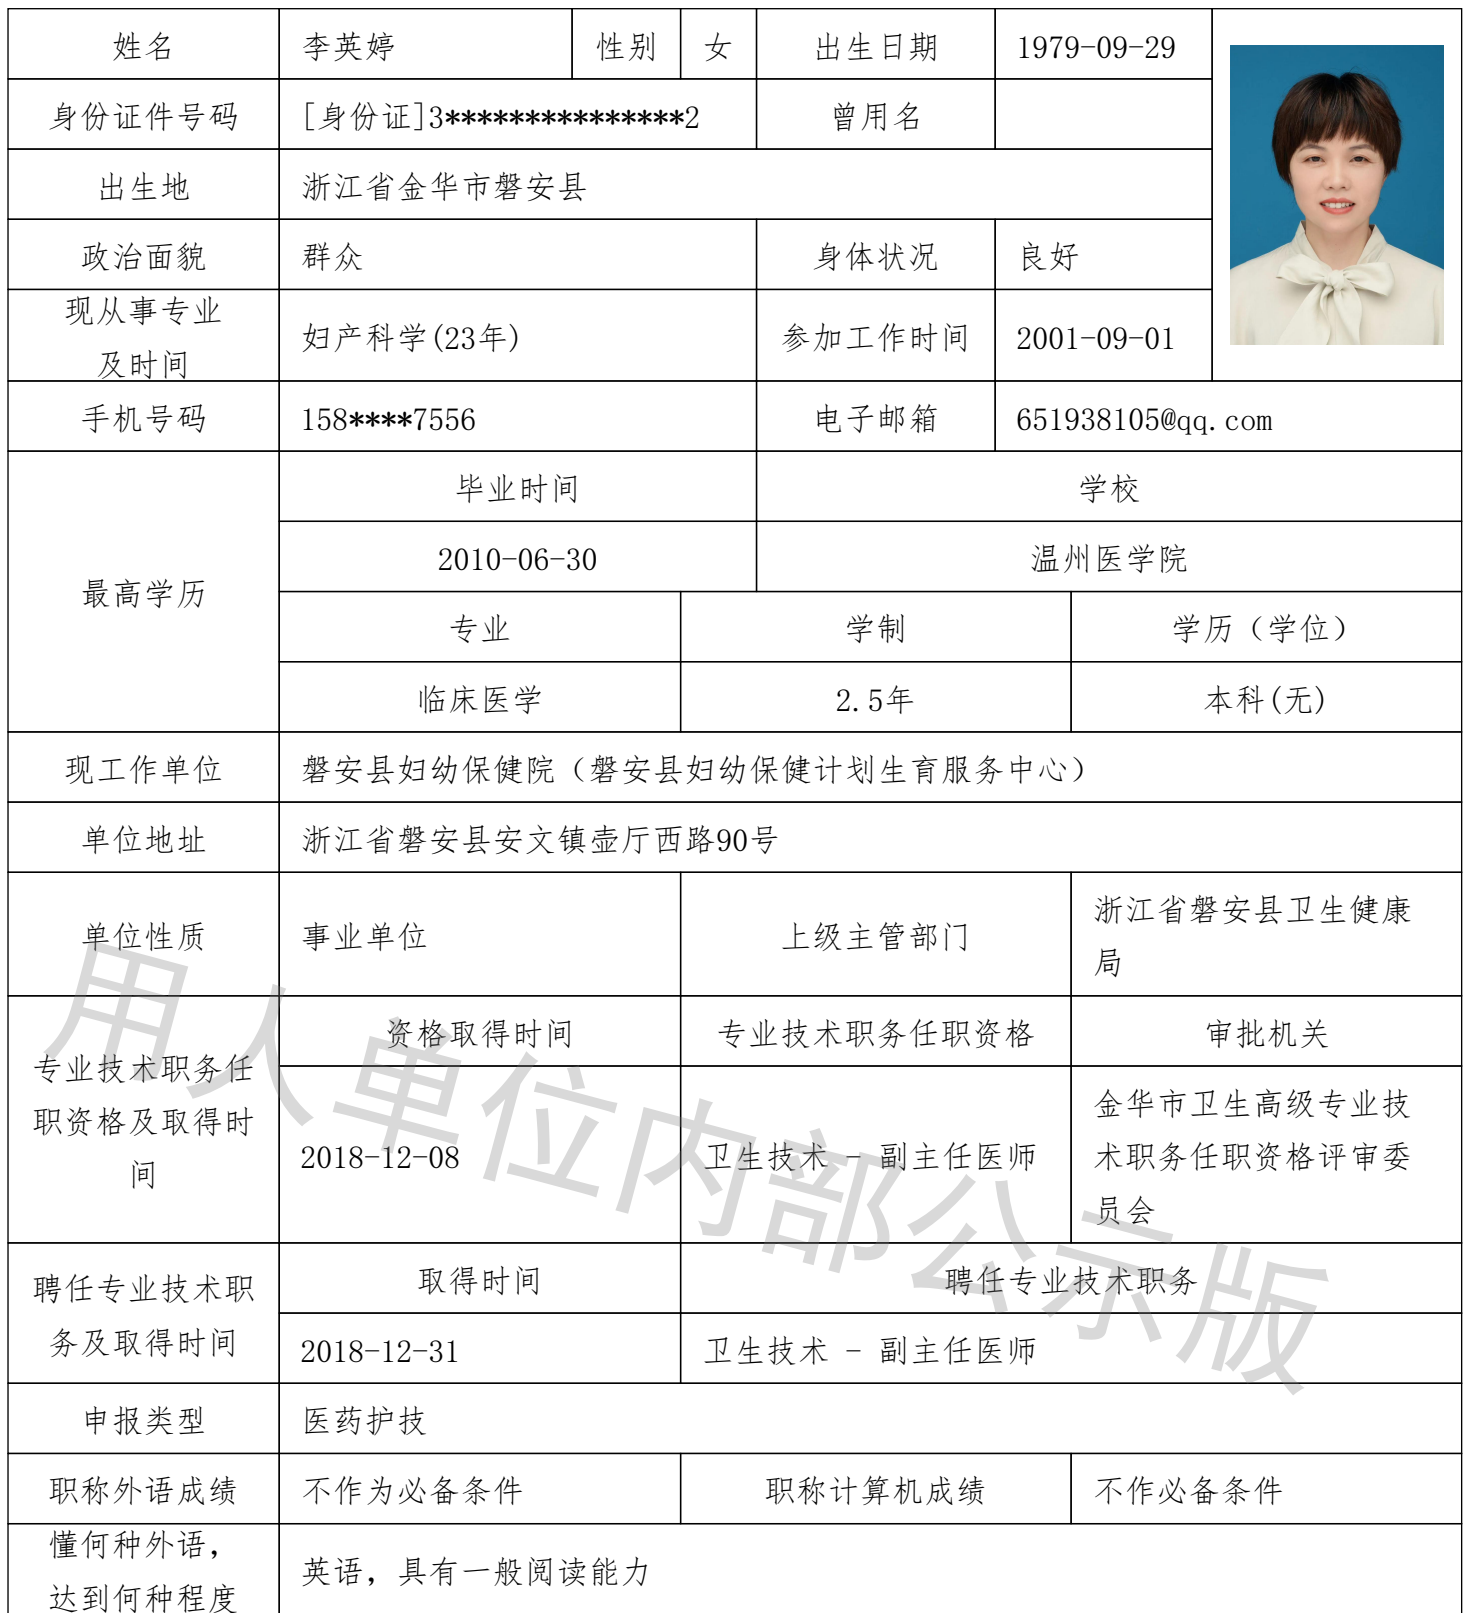 姓名 李英婷 性别 女 出生日期 1979-09-29
身份证件号码 [身份证]3***************2 曾用名
出生地 浙江省金华市磐安县
政治面貌 群众 身体状况 良好
现从事专业
及时间
妇产科学(23年) 参加工作时间 2001-09-01
手机号码 158****7556 电子邮箱 651938105@qq.com
最高学历
毕业时间 学校
2010-06-30 温州医学院
专业 学制 学历（学位）
临床医学 2.5年 本科(无)
现工作单位 磐安县妇幼保健院（磐安县妇幼保健计划生育服务中心）
单位地址 浙江省磐安县安文镇壶厅西路90号
单位性质 事业单位 上级主管部门
浙江省磐安县卫生健康
局
专业技术职务任
职资格及取得时
间
资格取得时间 专业技术职务任职资格 审批机关
2018-12-08 卫生技术 - 副主任医师
金华市卫生高级专业技
术职务任职资格评审委
员会
聘任专业技术职
务及取得时间
取得时间 聘任专业技术职务
2018-12-31 卫生技术 - 副主任医师
申报类型 医药护技
职称外语成绩 不作为必备条件 职称计算机成绩 不作必备条件
懂何种外语，
达到何种程度
英语，具有一般阅读能力
用人单位内部公示版